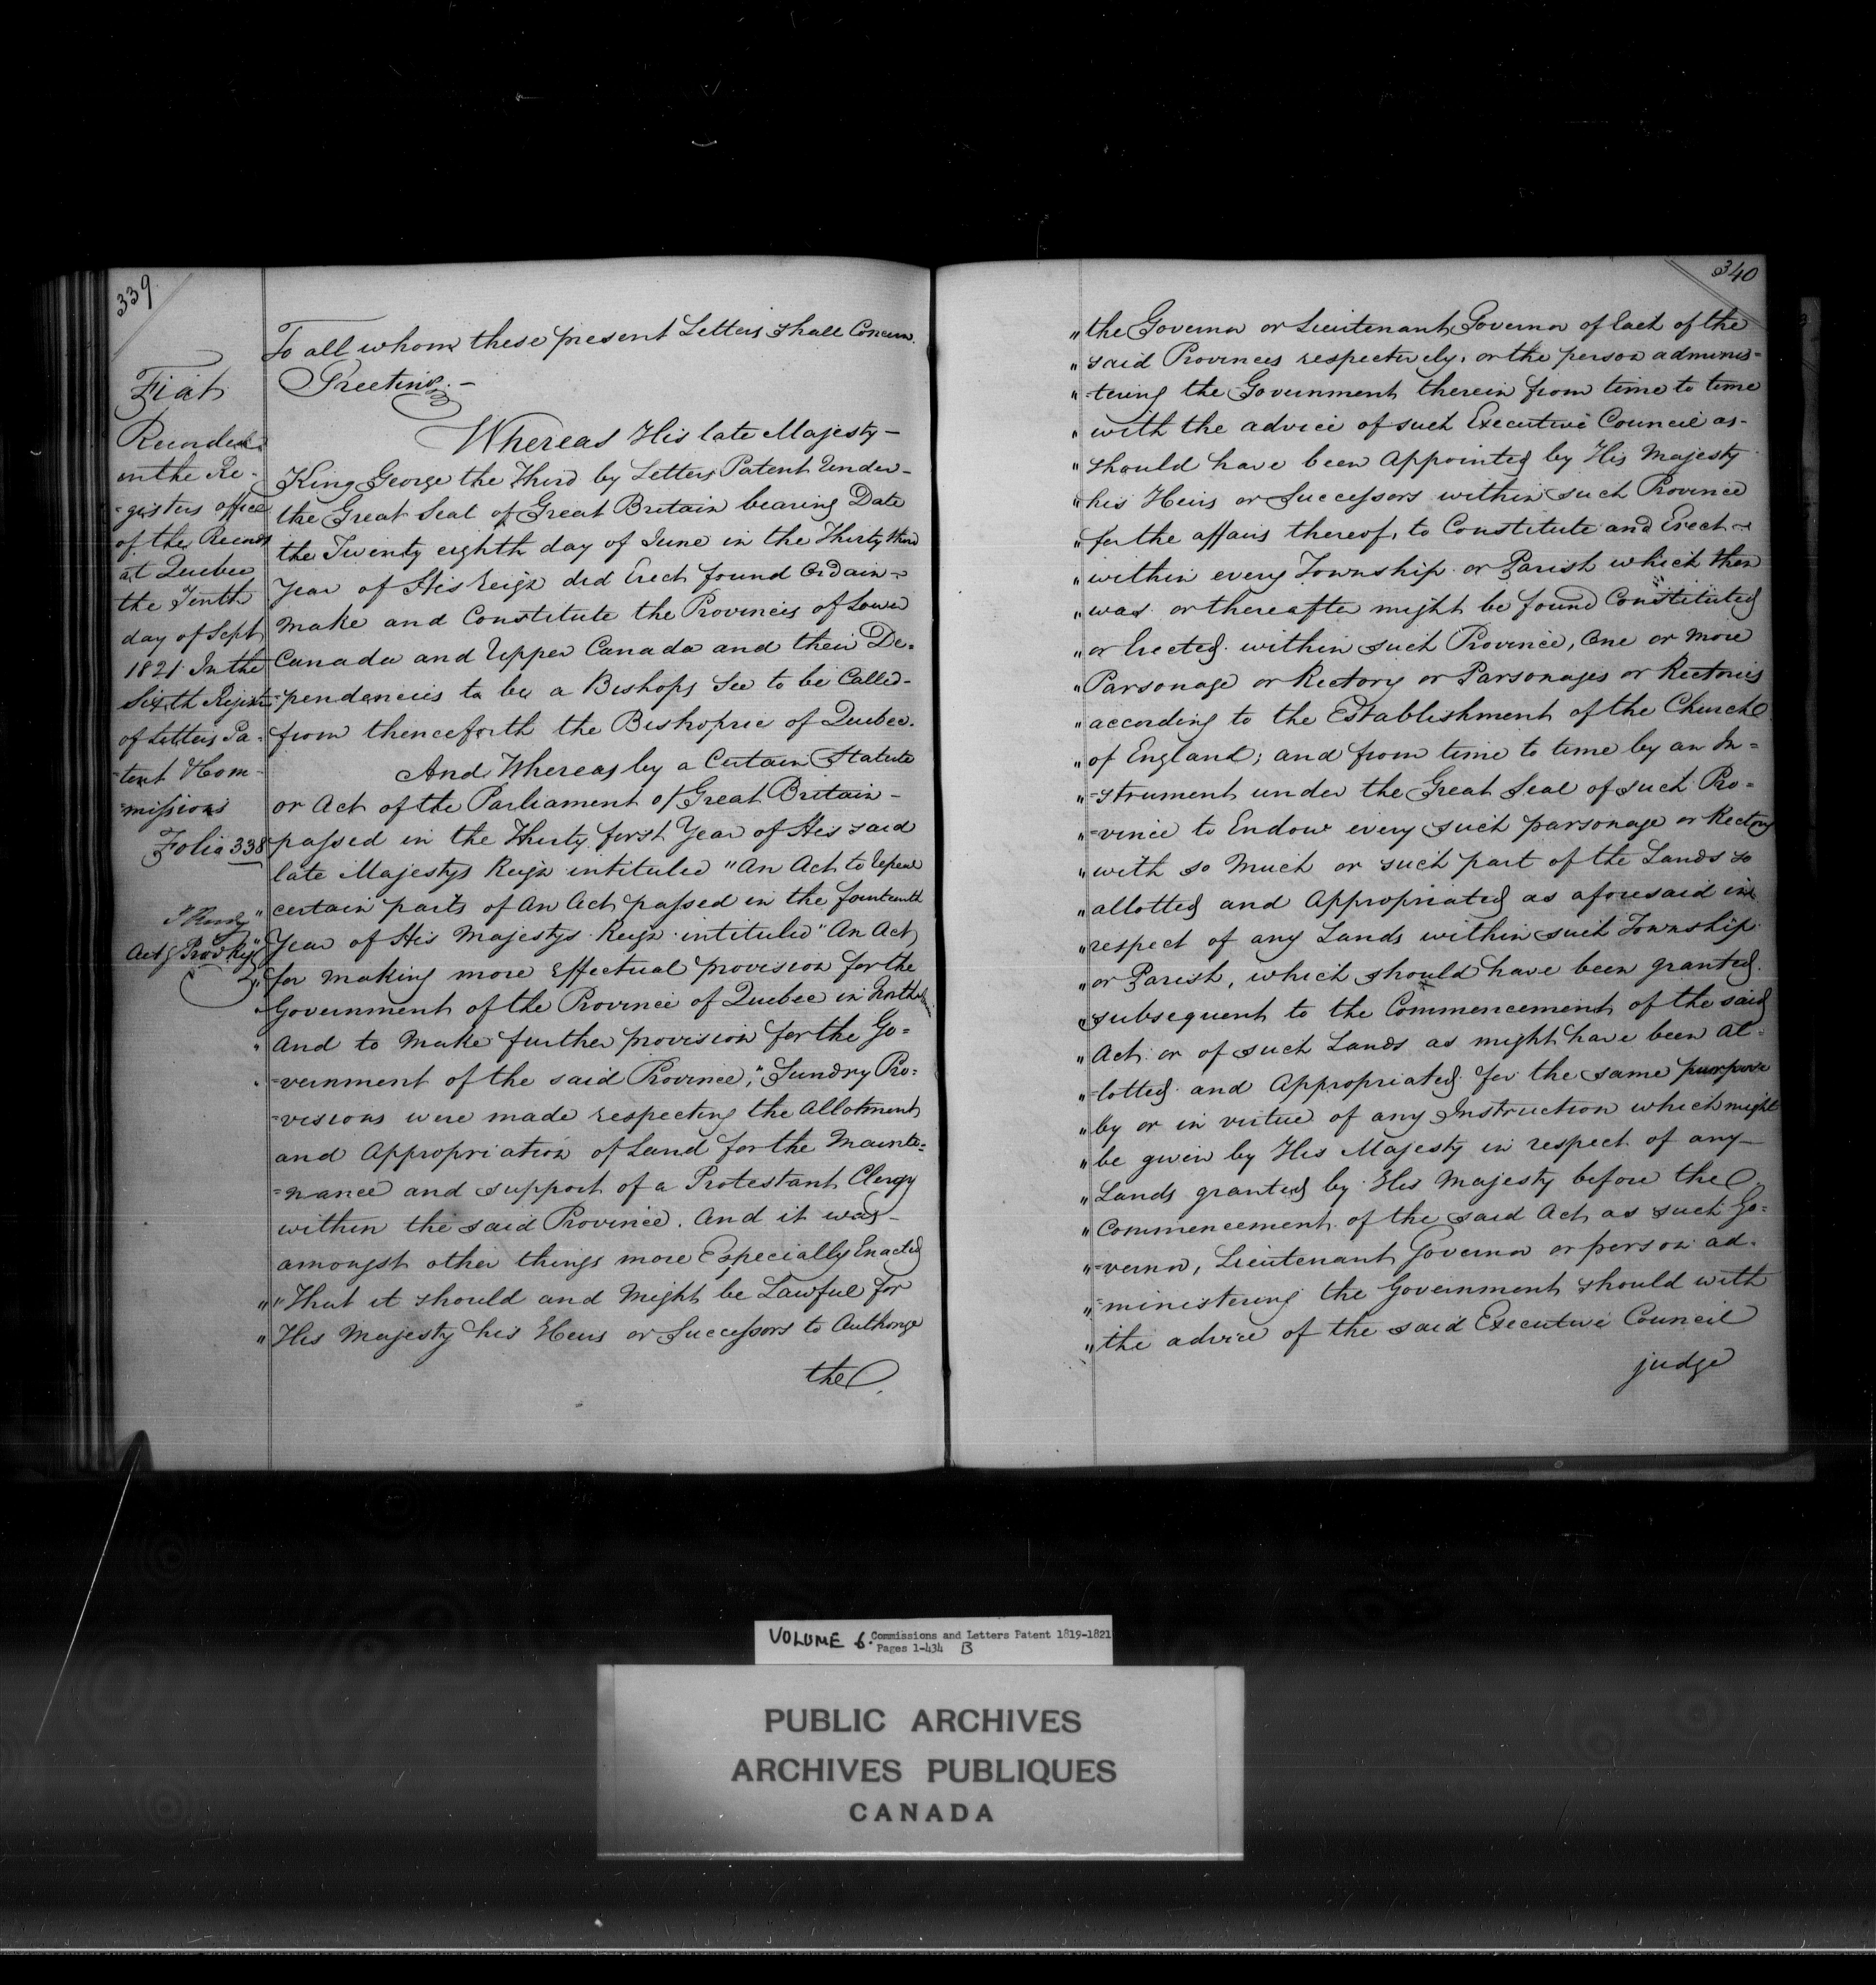 339
Fiat
Recorded
in the Re-
=gisters office
of the Records
at Quebec
the Tenth
day of Sept
1821 In the
Sixth Registr
of Letters Pa-
=tent & Com-
=missions
Folio 338
Actg Prov Regr
To all whom these present Letters shall Concern.
Greeting. -
Whereas His late Majesty -
King George the Third by Letters Patent Under-
the Great Seal of Great Britain bearing Date
the Twenty eighth day of June in the Thirty third
Year of His reign did Erect found Ordain -
make and Constitute the Provinces of Lower
Canada and Upper Canada and their De-
=pendencies to be a Bishops See to be Called-
from thenceforth the Bishopric of Quebec.
And Whereas by a Certain Statute
or Act of the Parliament of Great Britain -
passed in the Thirty first Year of His said
late Majestys Reign intituled "An Act to repeal
" certain parts of An Act passed in the fourteenth
" Year of His Majestys Reign intituled "An Act
" for making more effectual provision for the
" Government of the Province of Quebec in North America
" And to make further provision for the Go=
" =vernment of the said Province," Sundry Pro=
=visions were made respecting the Allotment
and Appropriation of Land for the Mainte=
=nance and support of a Protestant Clergy
within the said Province. And it was -
amongst other things more Especially Enacted
" "That it should and Might be Lawful for
" His Majesty his Heirs or Successors to Authorize
the
340
" the Governor or Lieutenant Governor of each of the
" said Provinces respectively, or the person adminis=
" =tering the Government therein from time to time
" with the advice of such Executive Council as-
" should have been Appointed by His Majesty
" his Heirs or Successors within such Province
" for the affairs thereof, to Constitute and Erect -
" within every Township or Parish which then
" was or thereafter might be found Constituted
" or Erected within such Province, One or more
" Parsonage or Rectory or Parsonages or Rectories
" according to the Establishment of the Church
" of England; and from time to time by an In=
" =strument under the Great Seal of such Pro=
" =vince to Endow every such parsonage or Rectory
" with so Much or such part of the Lands so
" allotted and Appropriated as aforesaid in
" respect of any Lands within such Township
" or Parish, which should have been granted
subsequent to the Commencement of the said
" Act or of such Lands as might have been al-
" =lotted and Appropriated for the same purpose
" by or in virtue of any Instruction which might
" be given by His Majesty in respect of any -
" Lands granted by His Majesty before the
" Commencement of the said Act as such Go=
" =vernor, Lieutenant Governor or person ad-
" =ministering the Government should with
" the advice of the said Executive Council
judge
VOLUME 6. Commissions and Letters Patent 1819-1821
Pages 1-434 B
PUBLIC ARCHIVES
ARCHIVES PUBLIQUES
CANADA